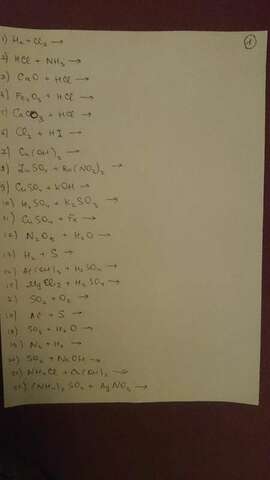 1
1) H₂ + Cl₂ →
2) HCl + NH₃ →
3) CaO + HCl →
4) Fe₂O₃ + HCl →
5) CaCO3 + HCl →
6) Cl₂ + HI →
7) Cu(OH)₂ →
8) ZnSO₄ + Ba(NO₃)₂ →
9) CuSO₄ + KOH →
10) H₂SO₄ + K₂SO₃ →
11) CuSO₄ + Fe →
12) N₂O₅ + H₂O →
13) H₂ + S →
Al(OH)₃ + H₂SO₄ →
MgCl₂ + H₂SO₄ →
SO₂ + O₂ →
Al + S →
SO₃ + H₂O →
N₂ + H₂ →
SO₂ + NaOH →
NH₄Cl + Ca(OH)₂ →
(NH₄)₂SO₄ + AgNO₃ →